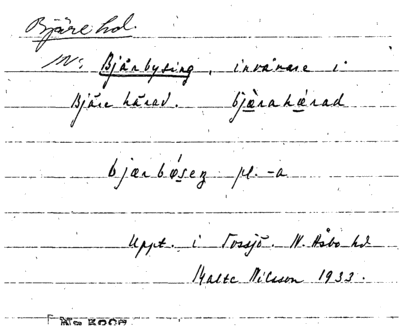 Bjäre hd.
Bjärbysing, invånare i
Bjäre härad. bjærahærad
bjærbo̗seŋ pl. -a
Uppt. i Tossjö. N. Åsbo hd
Malte Nilsson 1933.